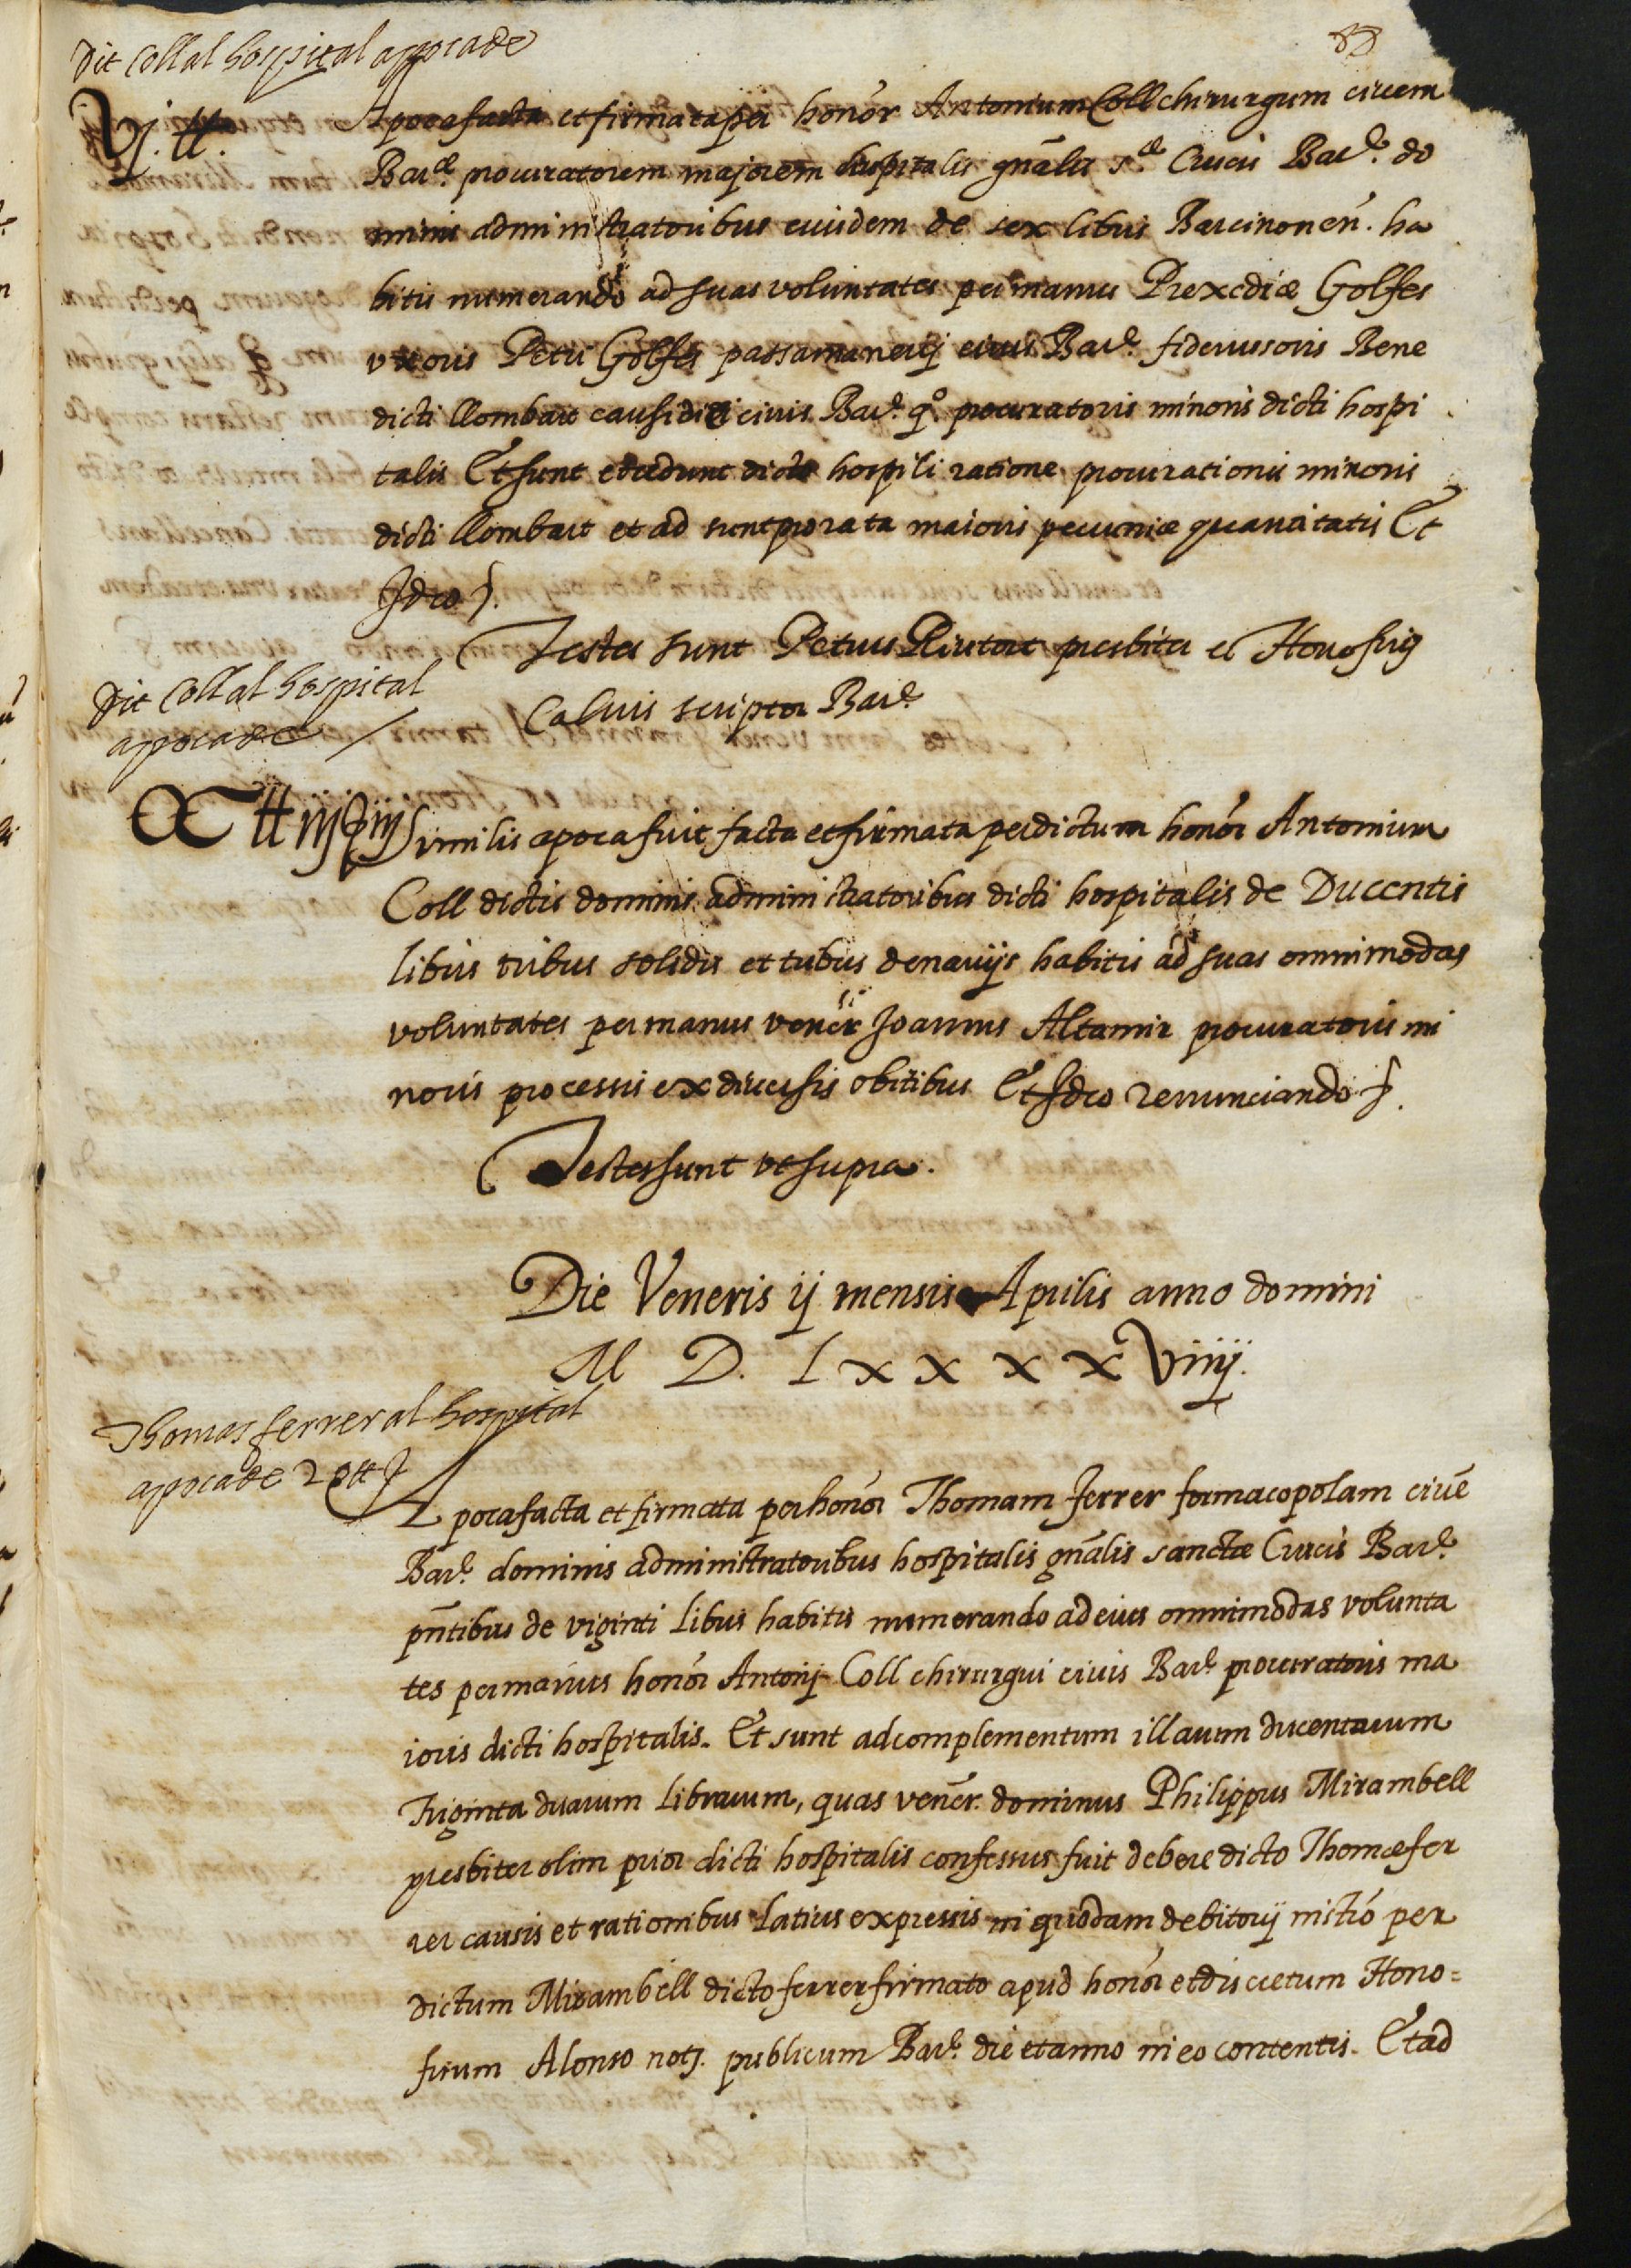 Dit Coll al hospital apoca de
Vj. ℔.
Apoca facta et firmata per honor Antonium Coll chirurgum civem
Barᵉ. procuratorem majorem hospitalis gñalis sᵉ Crucis Barᵉ. do
minis administratoribus eiusdem de sex libris Barcinonen̄. ha
bitis numerando ad suas voluntates per manus Prexediæ Golfes
uxoris Petri Golfes passamanerij civis Barᵉ. fideiussoris Bene
dicti llombart causidici civis Barᵉ. qº procuratoris minoris dicti hospi
talis Et sunt dicto hospitli ratione procurationis minoris
dicti llombart et ad sunt prorata maioris pecuniæ quantitatis Et
Ideo
Testes sunt Petrus Riutort presbiter et Honofrig
Calvis scriptor Barᵉ
Dit Coll al hospital
apoca de
CC ℔ iij ẞ iij
Similis apoca fuit facta et firmata per dictum honor Antonium
Coll dictis dominis administratoribus dicti hospitalis de Ducentis
libris tribus solidis et tribus denarijs habitis ad suas omnimodas
voluntates per manus vener Joannis Altamir procuratoris mi
noris processis ex diversis obitibus Et Ideo renunciando
Testes sunt ut supra.
Die Veneris ij mensis Aprilis anno domini
M D. L x x x x Viiij.
Thomas ferrer al hospital
apoca de 20 ℔
Apoca facta et firmata per honor Thomam ferrer farmacopolam civē
Barᵉ. dominis administratoribus hospitalis gñalis sanctæ Crucis Barᵉ.
pñtibus de viginti libris habitis numerando ad eius omnimodas volunta
tes per manus honor Antonij Coll chirurgui civis Barᵉ procuratoris ma
ioris dicti hospitalis. Et sunt ad complementum illarum ducentarum
Triginta duarum librarum, quas vener. dominus Philippus Mirambell
presbiter olim prior dicti hospitalis confessus fuit debere dicto Thomæ fer
rer causis et rationibus latius expressis in quodam debitorij nistrō per
dictum Mirambell dicto ferrer firmato apud honor et discretum Hono=
frium Alonso notj. publicum Barᵉ. die et anno in eo contentis. Et ad